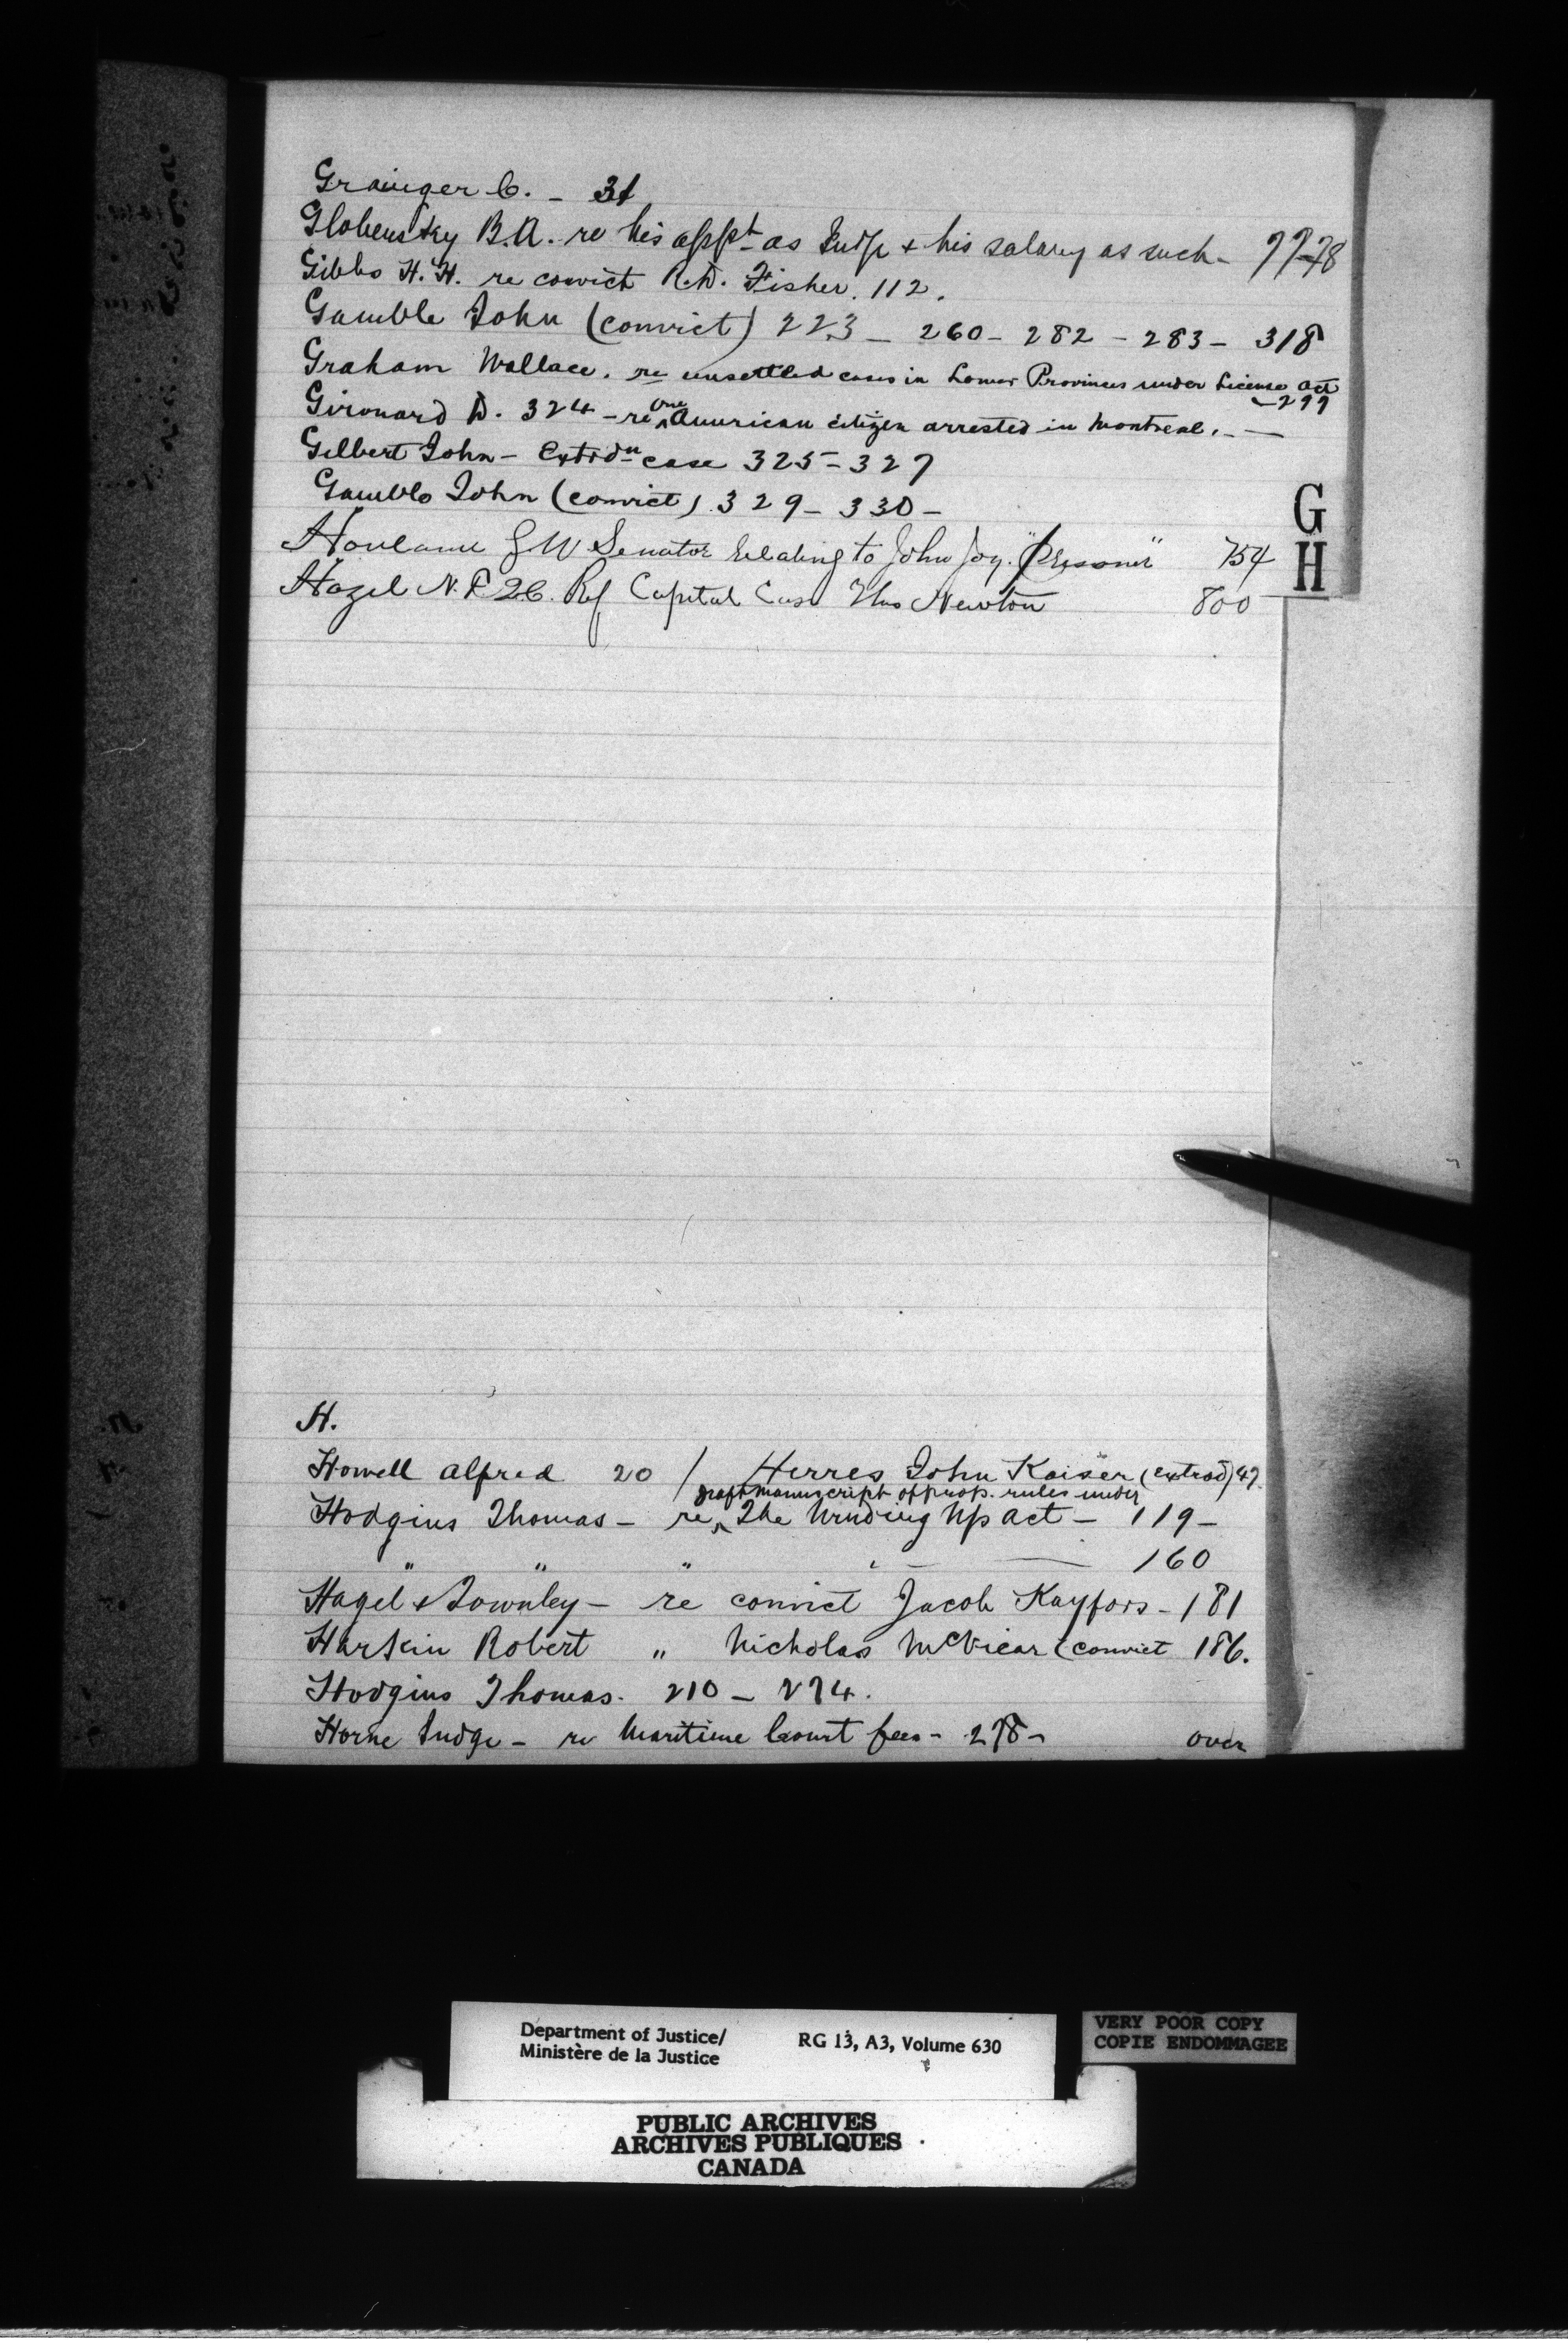 Grainger C. - 31
Globensky B.A. re his appt as Judge & his salary as such - 77-78
Gibbs H.H. re convict R.D. Fisher. 112.
Gamble John (convict) 223 - 260 - 282 - 283 - 318
Graham Wallace. re unsettled cases in Lower Provinces under License Act
- 299
Girouard D. 324 - re one American citizen arrested in Montreal. -
Gilbert John - Extrdn case 325 - 327
Gamble John (convict) 329 - 330 -
G
Senator Relating to John Joy. "Prisoner" 754
H
Hazel N.F. Q.C. Ref Capital Case Thos Newton 800
H.
Howell Alfred 20 / Herres John Kaiser (extrad) 47.
draft manuscript of prop. rules under
Hodgins Thomas - re The Winding Up Act - 119 -
" " " 160
Hagel & Townley - re convict Jacob Kayfors - 181
Harkin Robert " Nicholas McVicar (convict 186.
Hodgins Thomas. 210 - 274.
Horne Judge - re Maritime Court fees - 278 - over
Department of Justice/
Ministère de la Justice
RG 13, A3, Volume 630
VERY POOR COPY
COPIE ENDOMMAGEE
PUBLIC ARCHIVES
ARCHIVES PUBLIQUES
CANADA